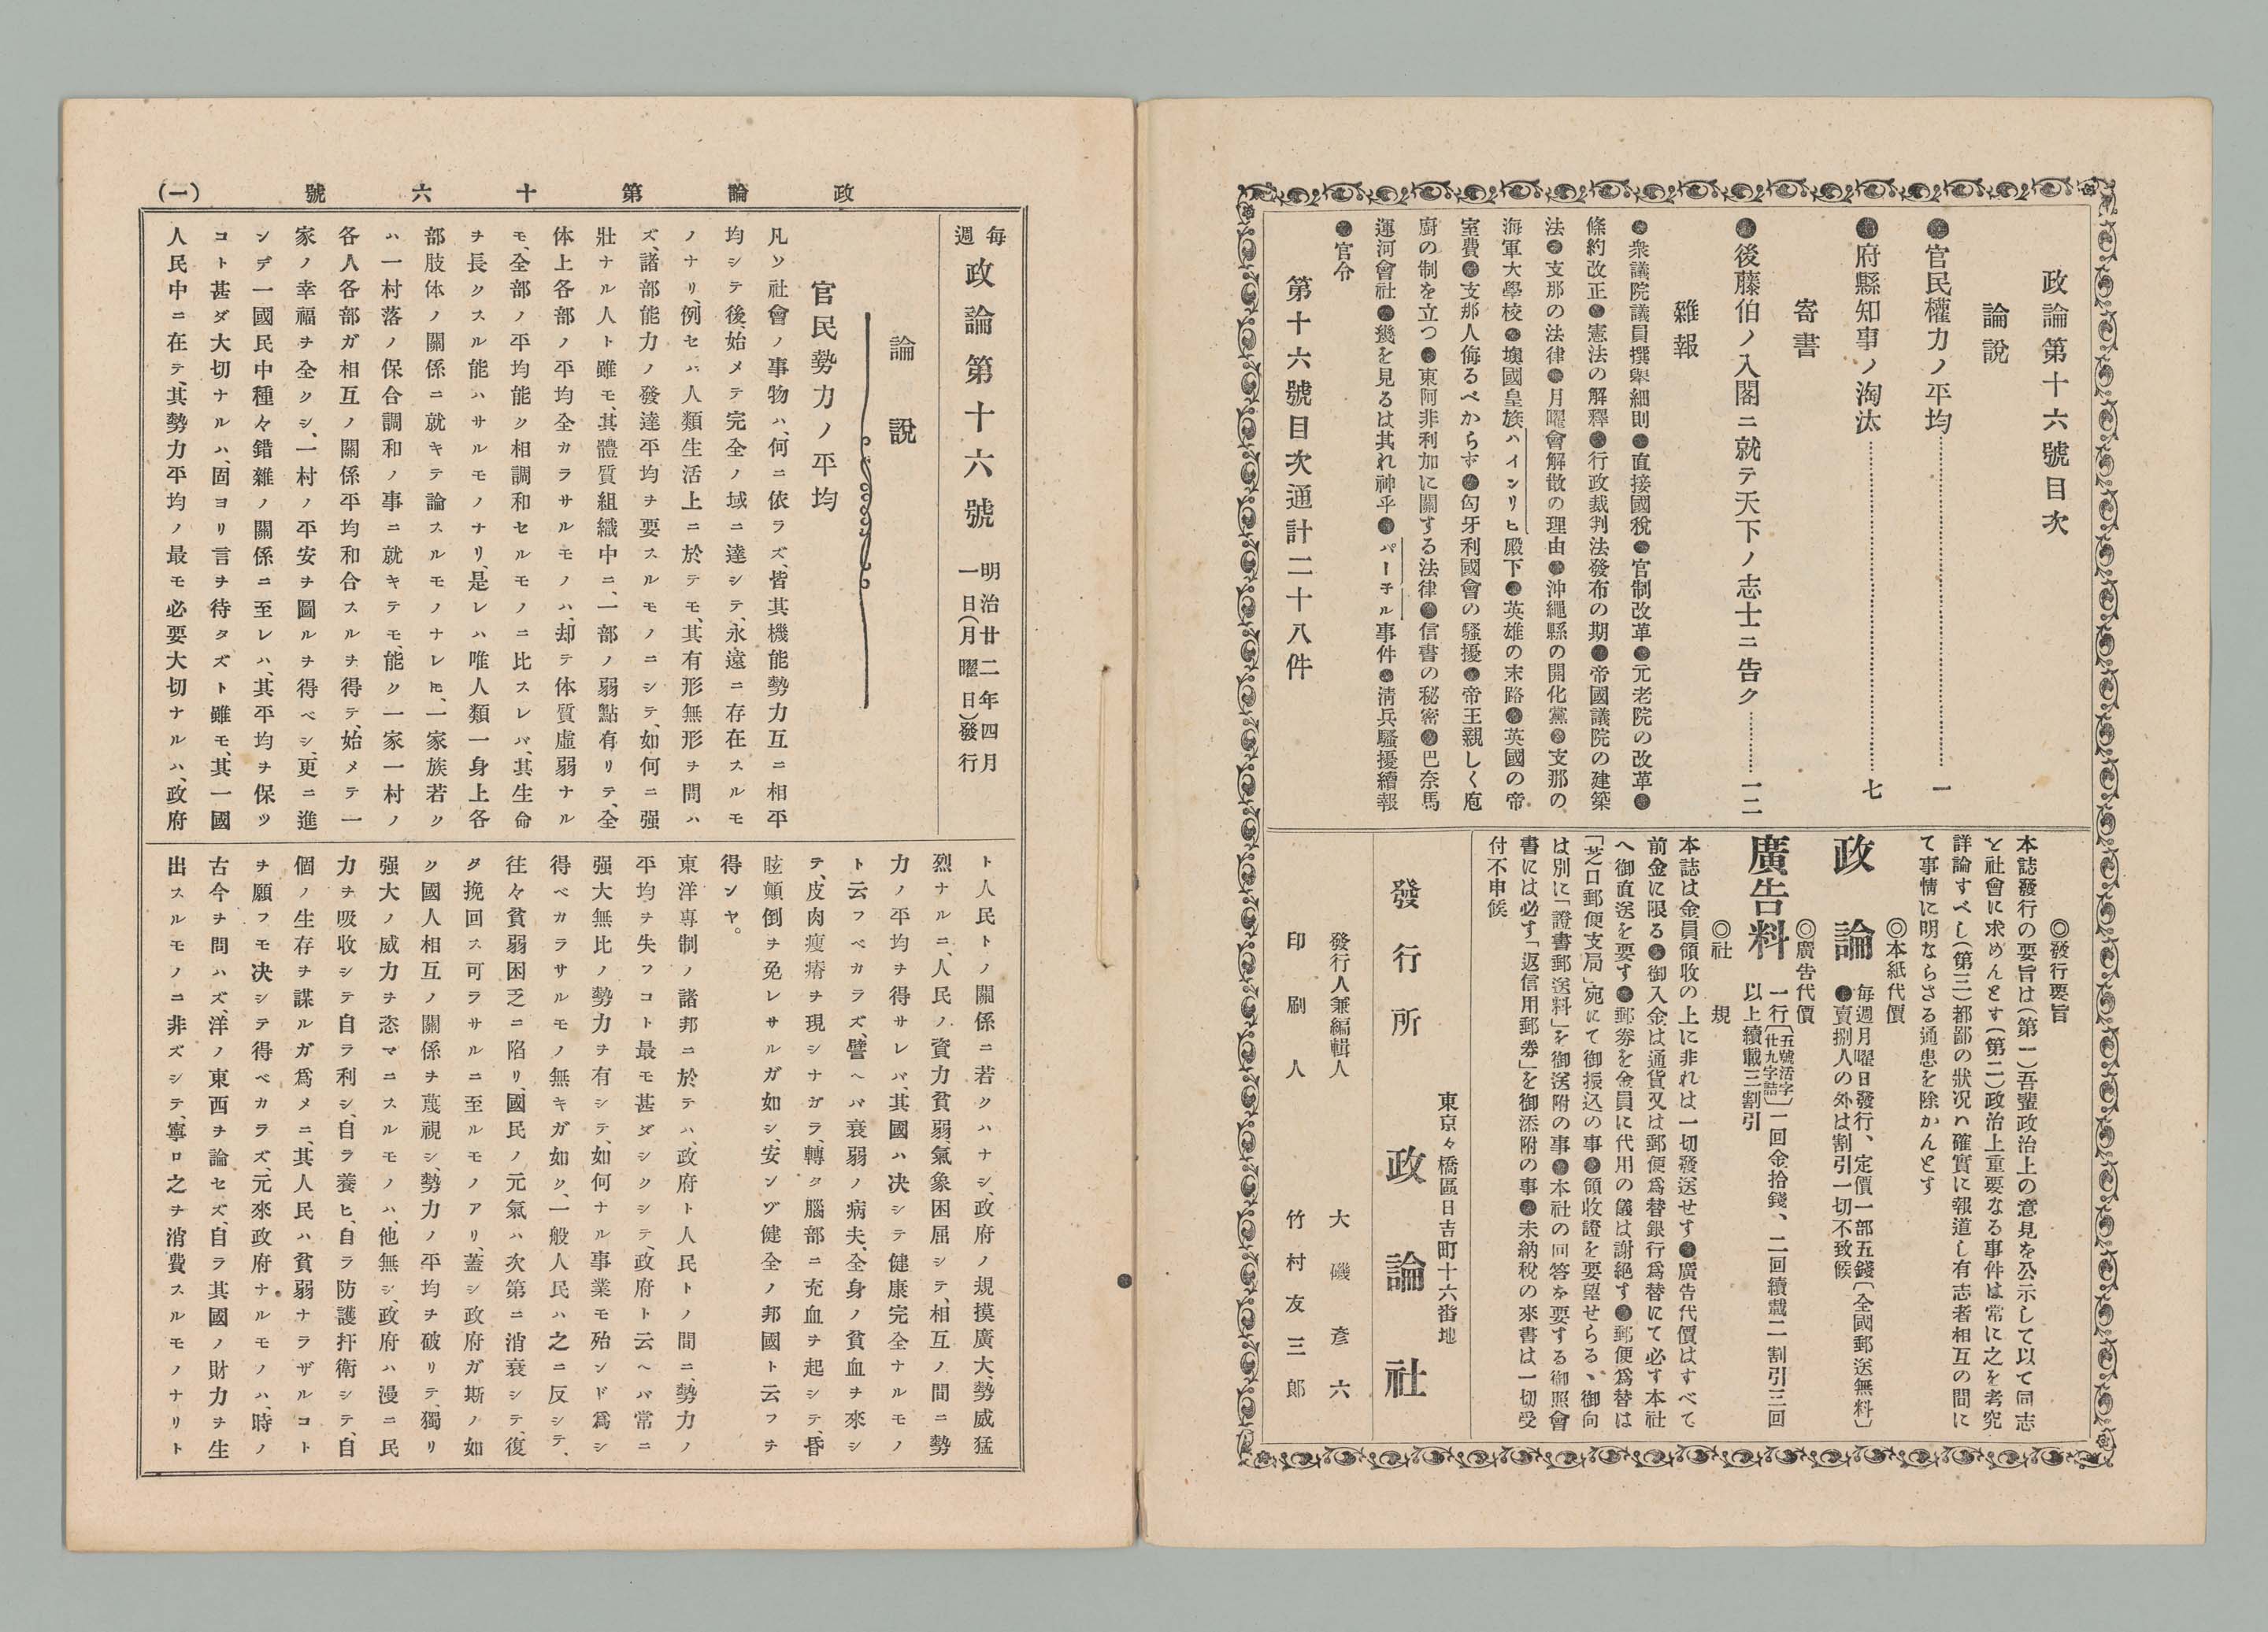 政論第十六號目次
論説
●官民權力ノ平均………一
●府縣知事ノ淘汰………七
寄書
●後藤伯ノ入閣ニ就テ天下ノ志士ニ告ク………一二
雜報
●衆議院議員撰擧細則●直接國稅●官制改革●元老院の改革●
條約改正●憲法の解釋●行政裁判法發布の期●帝國議院の建築
法●支那の法律●月曜會解散の理由●沖繩縣の開化黨●支那の
海軍大學校●墺國皇族ハインリヒ殿下●英雄の末路●英國の帝
室費●支那人侮るべからず●匈牙利國會の騷擾●帝王親しく庖
廚の制を立つ●東阿非利加に關する法律●信書の秘密●巴奈馬
運河會社●幾を見るは其れ神乎●パーチル事件●淸兵騷擾續報
●官令
第十六號目次通計二十八件
◎發行要旨
本誌發行の要旨は(第一)吾輩政治上の意見を公示して以て同志
を社會に求めんとす(第二)政治上重要なる事件は常に之を考究
詳論すべし(第三)都鄙の狀況ハ確實に報道し有志者相互の間に
て事情に明ならさる通患を除かんとす
◎本紙代價
政論 每週月曜日發行、定價一部五錢〔全國郵送無料〕
●賣捌人の外は割引一切不致候
◎廣告代價
廣告料 一行〔五號活字廿九字詰〕一回金拾錢、二回續載二割引三回
以上續載三割引
◎社規
本誌は金員領收の上に非れは一切發送せす●廣告代價はすべて
前金に限る●御入金は通貨又は郵便爲替銀行爲替にて必す本社
へ御直送を要す●郵券を金員に代用の儀は謝絕す●郵便爲替は
「芝口郵便支局」宛にて御振込の事●領收證を要望せらるゝ御向
は別に「證書郵送料」を御送附の事●本社の回答を要する御照會
書には必す「返信用郵券」を御添附の事●未納稅の來書は一切受
付不申候
東京々橋區日吉町十六番地
發行所 政論社
發行人兼編輯人 大磯彦六
印刷人 竹村友三郎
政論第十六號 (一)
每週 政論第十六號 明治廿二年四月一日(月曜日)發行
論説
官民勢力ノ平均
凡ソ社會ノ事物ハ、何ニ依ラズ、皆其機能勢力互ニ相平
均シテ後、始メテ完全ノ域ニ達シテ、永遠ニ存在スルモ
ノナリ、例セバ人類生活上ニ於テモ、其有形無形ヲ問ハ
ズ、諸部能力ノ發達平均ヲ要スルモノニシテ、如何ニ强
壯ナル人ト雖モ、其體質組織中ニ、一部ノ弱點有リテ、全
体上各部ノ平均全カラサルモノハ、却テ体質虛弱ナル
モ、全部ノ平均能ク相調和セルモノニ比スレバ、其生命
ヲ長クスル能ハサルモノナリ、是レハ唯人類一身上各
部肢体ノ關係ニ就キテ論スルモノナレ𪜈、一家族若ク
ハ一村落ノ保合調和ノ事ニ就キテモ、能ク一家一村ノ
各人各部ガ相互ノ關係平均和合スルヲ得テ、始メテ一
家ノ幸福ヲ全クシ、一村ノ平安ヲ圖ルヲ得ベシ、更ニ進
ンデ一國民中種々錯雜ノ關係ニ至レハ、其平均ヲ保ツ
コト甚ダ大切ナルハ、固ヨリ言ヲ待タズト雖モ、其一國
人民中ニ在テ、其勢力平均ノ最モ必要大切ナルハ、政府
ト人民トノ關係ニ若クハナシ、政府ノ規摸廣大、勢威猛
烈ナルニ、人民ノ資力貧弱氣象困屈シテ、相互ノ間ニ勢
力ノ平均ヲ得サレバ、其國ハ决シテ健康完全ナルモノ
ト云フベカラズ、譬ヘバ衰弱ノ病夫、全身ノ貧血ヲ來シ
テ、皮肉瘦瘠ヲ現シナガラ、轉タ腦部ニ充血ヲ起シテ、昏
眩顛倒ヲ免レサルガ如シ、安ンゾ健全ノ邦國ト云フヲ
得ンヤ。
東洋專制ノ諸邦ニ於テハ、政府ト人民トノ間ニ、勢力ノ
平均ヲ失フコト最モ甚ダシクシテ、政府ト云ヘバ常ニ
强大無比ノ勢力ヲ有シテ、如何ナル事業モ殆ンド爲シ
得ベカラサルモノ無キガ如ク、一般人民ハ之ニ反シテ、
往々貧弱困乏ニ陷リ、國民ノ元氣ハ次第ニ消衰シテ、復
タ挽回ス可ラサルニ至ルモノアリ、蓋シ政府ガ斯ノ如
ク國人相互ノ關係ヲ蔑視シ、勢力ノ平均ヲ破リテ、獨リ
强大ノ威力ヲ恣マニスルモノハ、他無シ、政府ハ漫ニ民
力ヲ吸收シテ自ラ利シ、自ラ養ヒ、自ラ防護扞衛シテ、自
個ノ生存ヲ謀ルガ爲メニ、其人民ハ貧弱ナラザルコト
ヲ願フモ决シテ得ベカラズ、元來政府ナルモノハ、時ノ
古今ヲ問ハズ、洋ノ東西ヲ論セズ、自ラ其國ノ財力ヲ生
出スルモノニ非ズシテ、寧ロ之ヲ消費スルモノナリト